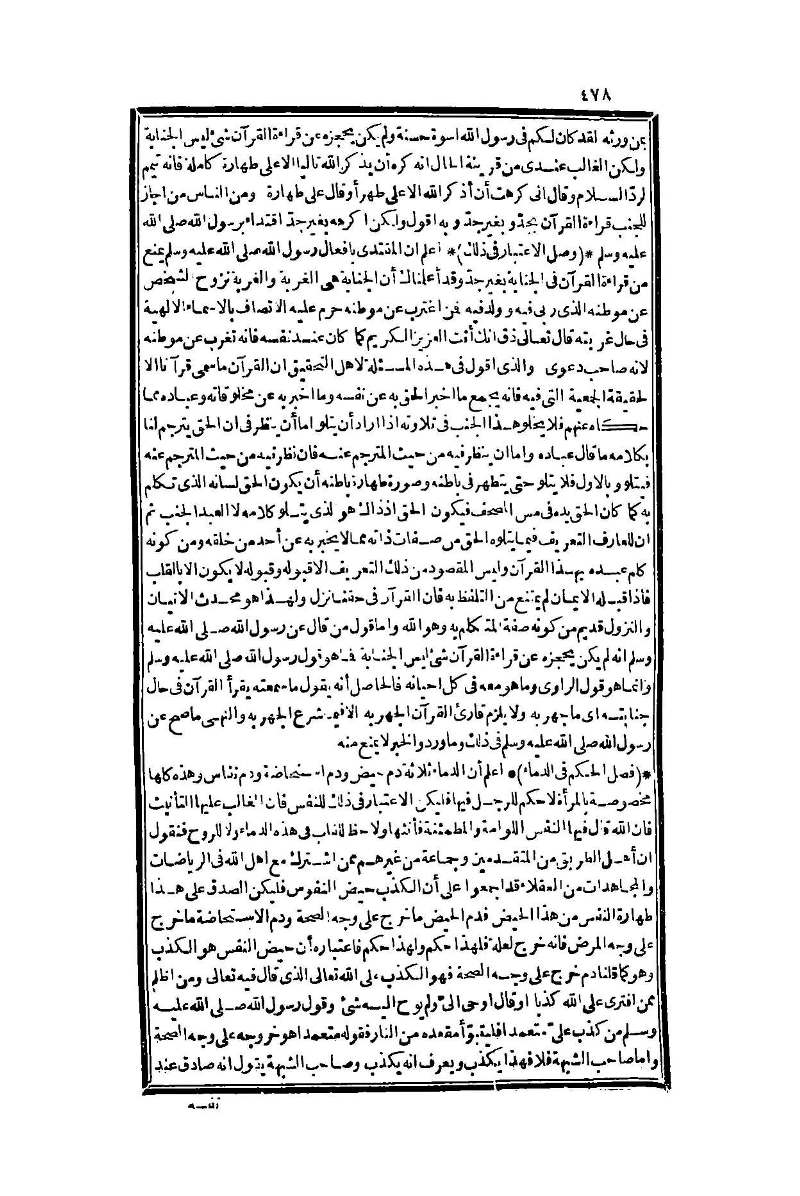 ٤٧٨
ممن ورثه لقد كان لكم فى رسول الله اسوة حسنة ولم يكن يحجزه عن قراءة القرآن شئ ليس الجنابة
ولكن الغالب عندى من قرينة الحال انه كره أن يذكر الله تعالى الاعلى طهارة كاملة فانه تيمم
لردّ السلام وقال انى كرهت أن أذكر الله الاعلى طهر أو قال على طهارة ومن الناس من اجاز
للجنب قراءة القرآن بحدّ وبغير حدّ وبه اقول ولكن اكرهه بغير حدّ اقتداء برسول الله صلى الله
عليه وسلم *(وصل الاعتبار فى ذلك)* اعلم ان المقتدى بافعال رسول الله صلى الله عليه وسلم يمنع
من قراءة القرآن فى الجنابة بغير حدّ وقد أعلمناك أن الجنابة هى الغربة والغربة نزوح الشخص
عن موطنه الذى ربى فيه وولد فيه فمن اغترب عن موطنه حرم عليه الاتصاف بالاسماء الالهية
فى حال غربته قال تعالى ذق انك أنت العزيز الكريم كما كان عند نفسه فانه تغرب عن موطنه
لانه صاحب دعوى والذى اقول فى هذه المسئلة لاهل التحقيق ان القرآن ماسمى قرآنا الا
لحقيقة الجمعية التى فيه فانه يجمع ما اخبر الحق به عن نفسه وما اخبر به عن مخلوقاته وعباده مما
حكاه عنهم فلا يخلو هذا الجنب فى تلاوته اذا اراد أن يتلو اما أن ينظر فى ان الحق يترجم لنا
بكلامه ما قال عباده واما ان ينظر فيه من حيث المترجم عنه فان نظر فيه من حيث المترجم عنه
فيتلو وبالاول فلا يتلو حتى يتطهر فى باطنه وصورة طهارة باطنه أن يكون الحق لسانه الذى تكلم
به كما كان الحق يده فى مس المصحف فيكون الحق اذ ذاك هو الذى يتلو كلامه لا العبد الجنب ثم
ان للعارف التعريف فيما يتلوه الحق من صفات ذاته مما لا يخبر به عن أحد من خلقه ومن كونه
كلم عبده بهذا القرآن وليس المقصود من ذلك التعريف الا قبوله وقبوله لا يكون الا بالقلب
فاذا قبله الايمان لم يمتنع من التلفظ به فان القرآن فى حقنا نزل ولهذا هو محدث الاتيان
والنزول قديم من كونه صفة المتكلم به وهو الله واما قول من قال عن رسول الله صلى الله عليه
وسلم انه لم يكن يحجزه عن قراءة القرآن شئ ليس الجنابة فما هو قول رسول الله صلى الله عليه وسلم
وانما هو قول الراوى وما هو معه فى كل احيانه فالحاصل أنه يقول ما سمعته يقرأ القرآن فى حال
جنابته اى ماجهر به ولا يلزم قارئ القرآن الجهر به الا فيما شرع الجهر به والنهى ما صح عن
رسول الله صلى الله عليه وسلم فى ذلك وما ورد والخبر لا يمنع منه
*(فصل الحكم فى الدماء)* اعلم أن الدماء ثلاثة دم حيض ودم استحاضة ودم نفاس وهذه كلها
مخصوصة بالمرأة لا حكم للرجل فيها فليكن الاعتبار فى ذلك للنفس فان الغالب عليها التأنيث
فان الله قال فيها النفس اللوامة والمطمئنة فأنثها ولا حظ للقلب فى هذه الدماء ولا للروح فنقول
ان أهل الطريق من المتقدمين وجماعة من غيرهم ممن اشترك مع اهل الله فى الرياضات
والمجاهدات من العقلاء قد اجمعوا على أن الكذب حيض النفوس فليكن الصدق على هذا
طهارة النفس من هذا الحيض فدم الحيض ما خرج على وجه الصحة ودم الاستحاضة ما خرج
على وجه المرض فانه خرج لعلة فلهذا حكم ولهذا حكم فاعتباره أن حيض النفس هو الكذب
وهو كما قلنا دم خرج على وجه الصحة فهو الكذب على الله تعالى الذى قال فيه تعالى ومن اظلم
ممن افترى على الله كذبا او قال اوحى الىّ ولم يوح اليه شئ وقول رسول الله صلى الله عليه
وسلم من كذب علىّ متعمدا فليتبوّأ مقعده من النار فقوله متعمدا هو خروجه على وجه الصحة
واما صاحب الشبهة فلا فهذا يكذب ويعرف انه يكذب وصاحب الشبهة يقول انه صادق عند
نفسه